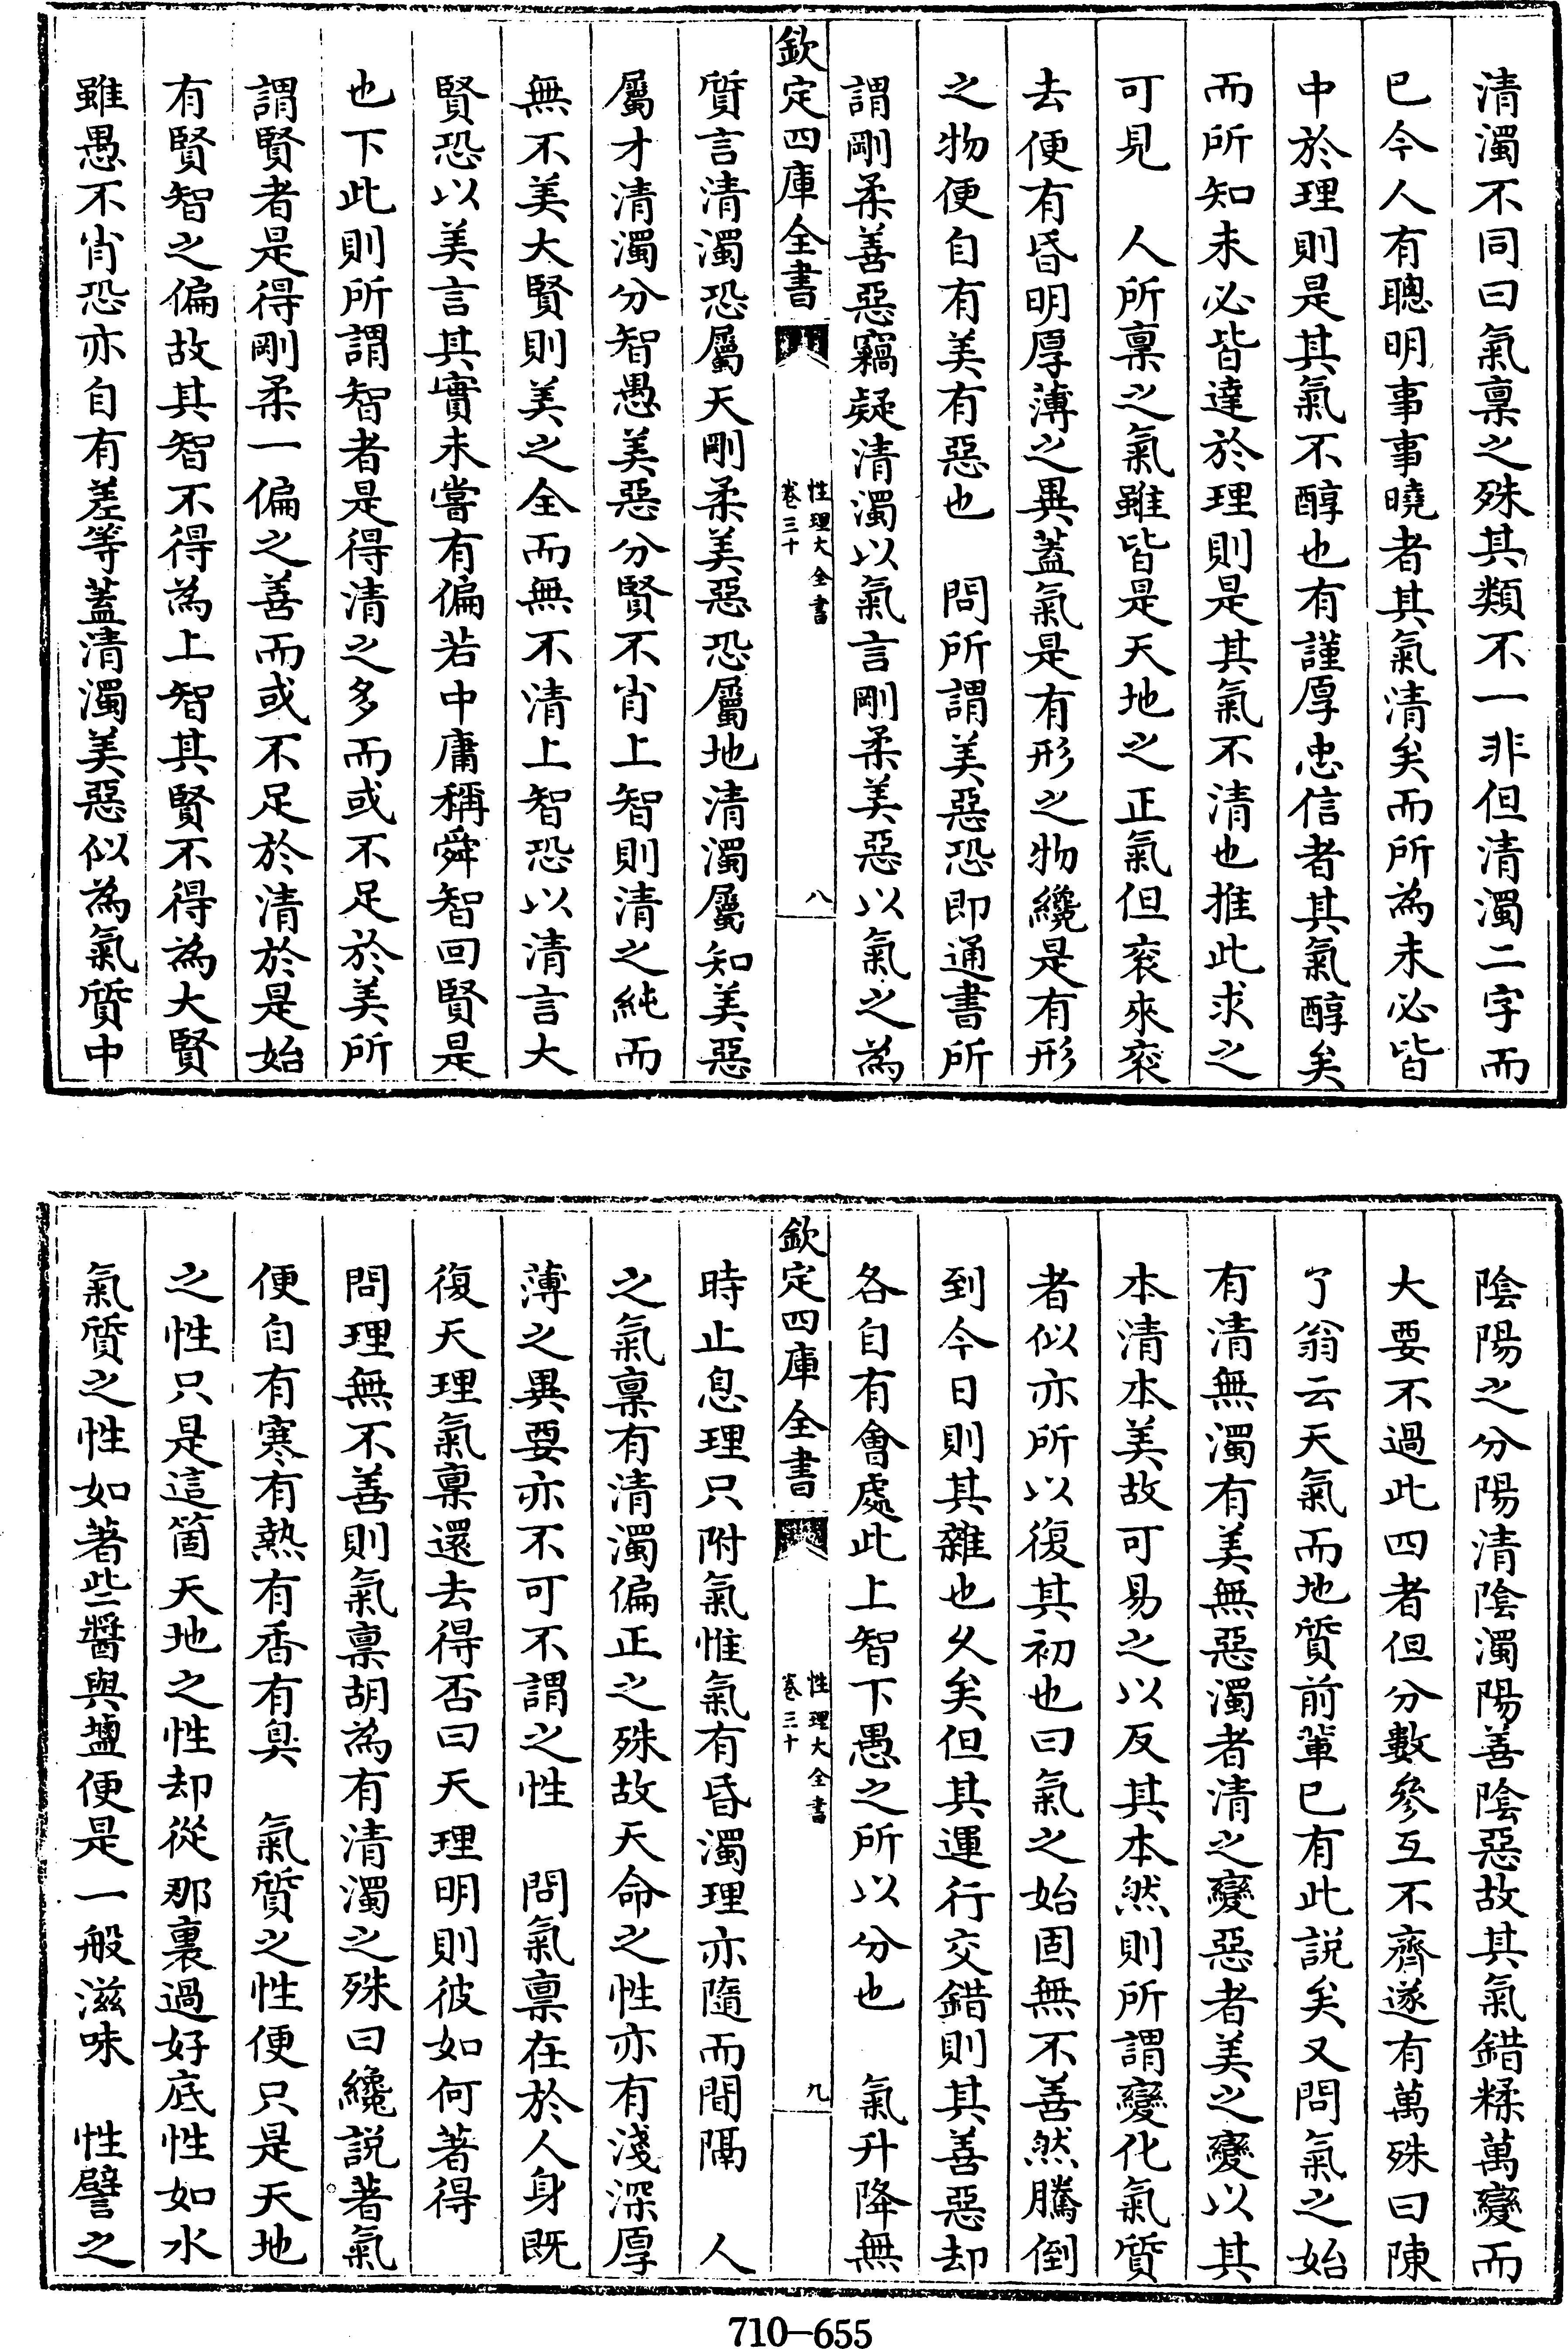 清濁不同曰氣禀之殊其類不一非但清濁二字而
已今人有聰明事事曉者其氣清矣而所為未必皆
中於理則是其氣不醇也有謹厚忠信者其氣醇矣
而所知未必皆達於理則是其氣不清也推此求之
可見　人所禀之氣雖皆是天地之正氣但衮來衮
去便有昏明厚薄之異蓋氣是有形之物纔是有形
之物便自有美有惡也　問所謂美惡恐即通書所
謂剛柔善惡竊疑清濁以氣言剛柔美惡以氣之為
欽定四庫全書
性理大全書
卷三十
八
質言清濁恐屬天剛柔美惡恐屬地清濁屬知美惡
屬才清濁分智愚美惡分賢不肖上智則清之純而
無不美大賢則美之全而無不清上智恐以清言大
賢恐以美言其實未嘗有偏若中庸稱舜智回賢是
也下此則所謂智者是得清之多而或不足於美所
謂賢者是得剛柔一偏之善而或不足於清於是始
有賢智之偏故其智不得為上智其賢不得為大賢
雖愚不肖恐亦自有差等蓋清濁美惡似為氣質中
陰陽之分陽清陰濁陽善陰惡故其氣錯糅萬變而
大要不過此四者但分數參互不齊遂有萬殊曰陳
了翁云天氣而地質前輩已有此説矣又問氣之始
有清無濁有美無惡濁者清之變惡者美之變以其
本清本美故可易之以反其本然則所謂變化氣質
者似亦所以復其初也曰氣之始固無不善然騰倒
到今日則其雜也久矣但其運行交錯則其善惡却
各自有會處此上智下愚之所以分也　氣升降無
欽定四庫全書
性理大全書
卷三十
九
時止息理只附氣惟氣有昏濁理亦隨而間隔　人
之氣禀有清濁偏正之殊故天命之性亦有淺深厚
薄之異要亦不可不謂之性　問氣禀在於人身既
復天理氣禀還去得否曰天理明則彼如何著得
問理無不善則氣禀胡為有清濁之殊曰纔説著氣
便自有寒有熱有香有臭　氣質之性便只是天地
之性只是這箇天地之性却從那裏過好底性如水
氣質之性如著些醬與鹽便是一般滋味　性譬之
710-655